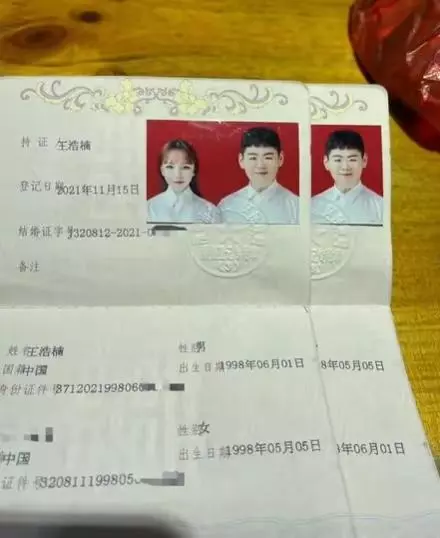 持证人王浩楠
登记日期2021年11月15日
结婚证字号J320812-2021-0
备注
姓名王浩楠 性别男
国籍中国 出生日期1998年06月01日 8年05月05日
身份证件号371202199806
性别女
中国 出生日期1998年05月05日 8年06月01日
证件号320811199805